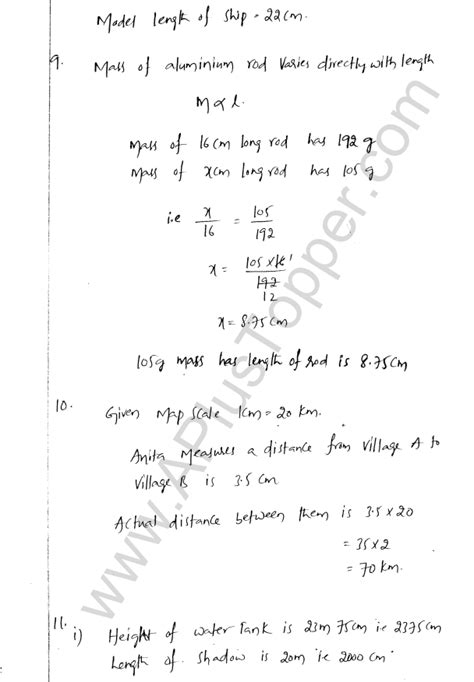 Model length of ship = 22cm.
9. Mass of aluminium rod varies directly with length
M ∝ l.
Mass of 16cm long rod has 192 g
Mass of xcm long rod has 105 g
i.e x/16 = 105/192
x = 105 × 16 1 / 192 12
x = 8.75cm
105g mass has length of rod is 8.75cm
10. Given Map scale 1cm = 20 km.
Anita measures a distance from village A to
village B is 3.5 cm
Actual distance between them is 3.5 × 20
= 35 × 2
= 70 km.
11. i) Height of water tank is 23m 75cm i.e 2375cm
Length of shadow is 20m i.e 2000 cm
www.APlusTopper.com